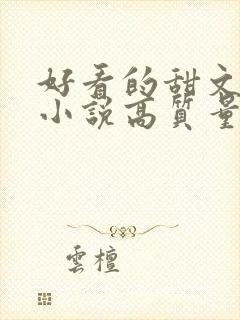 好看的甜文
小說高質量
雲檀